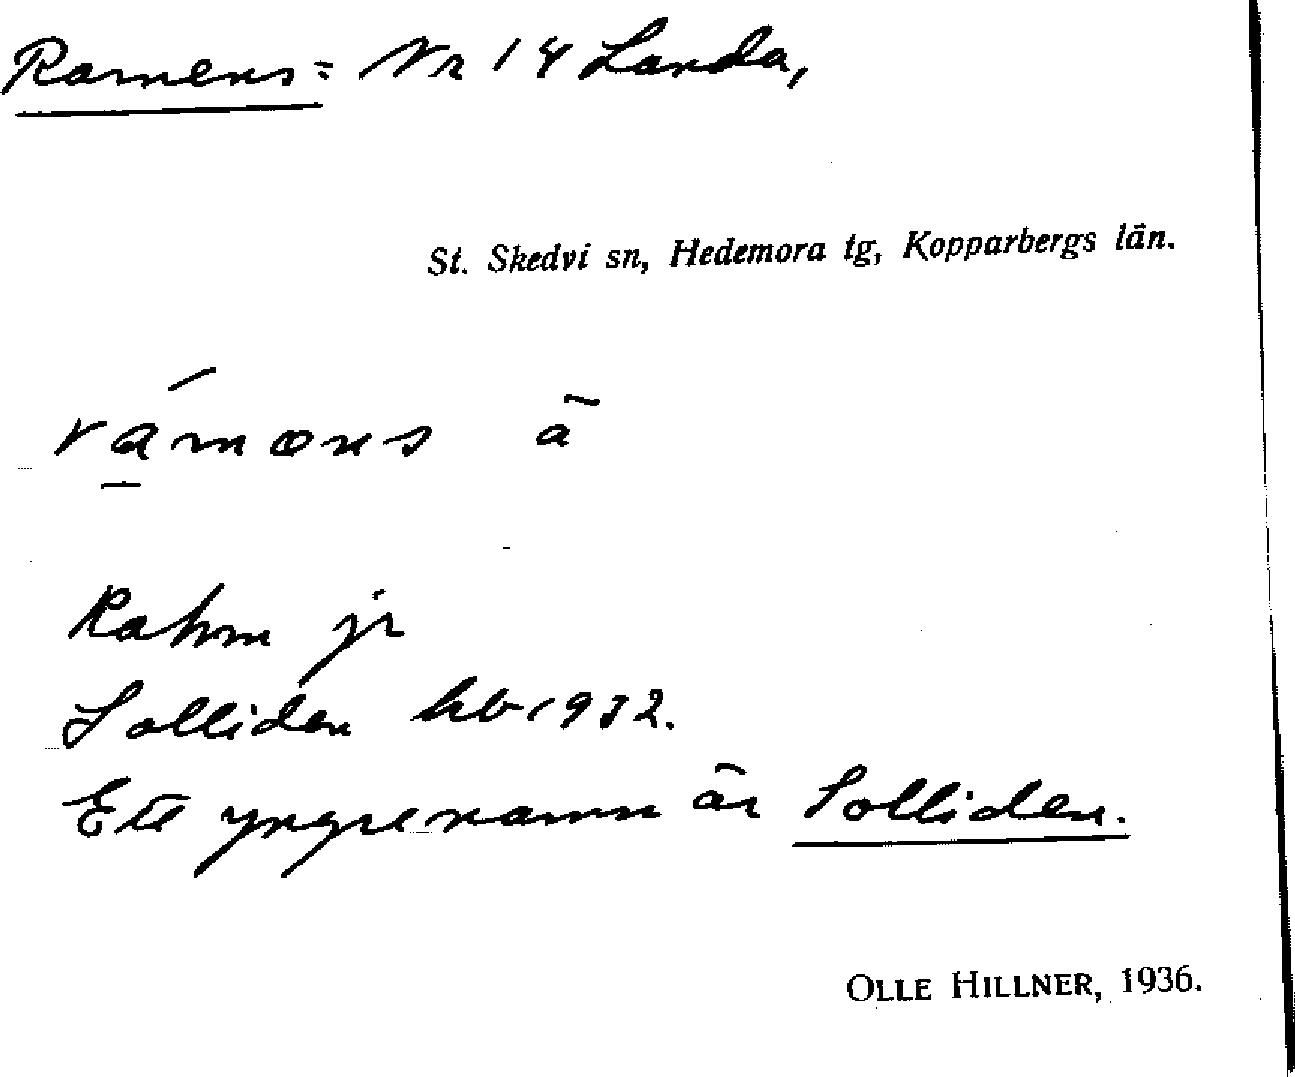 Ramens = Nr 14 Landa,
St. Skedvi sn, Hedemora tg, Kopparbergs län.
rá̱mөns ā
Rahm jr
Solliden hb 1932.
Ett yngre namn är Solliden.
OLLE HILLNER, 1936.